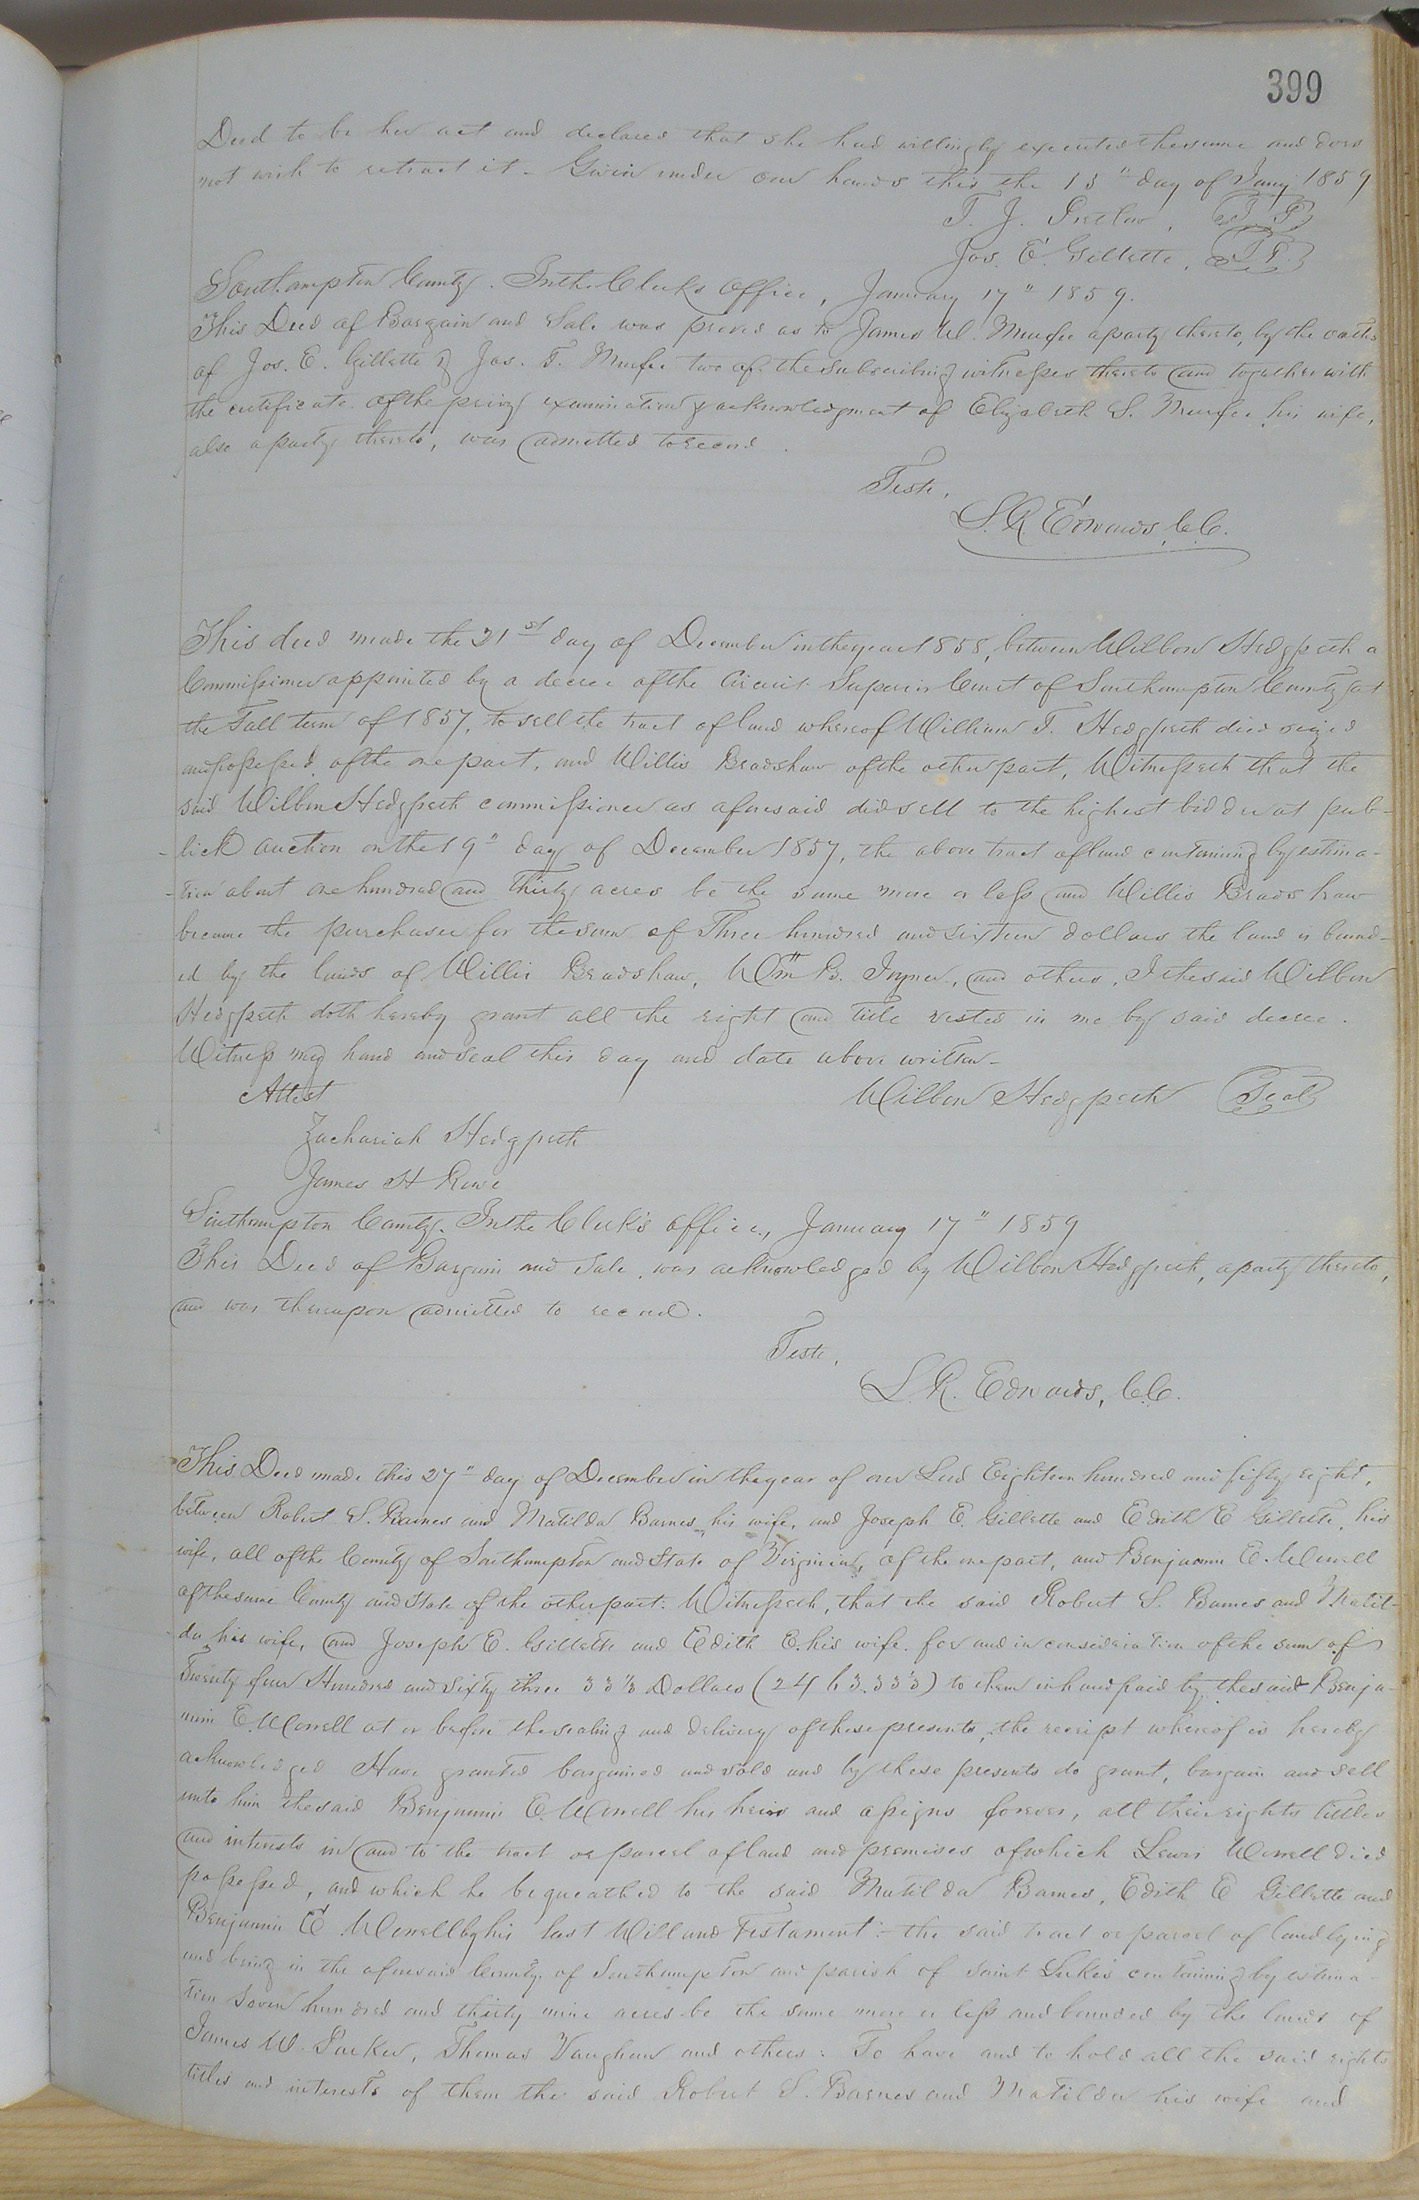 399
Deed to be her act and declared that she had willingly executed the same and does
not wish to retract it. Given under our hands this the 13" day of Jany 1859
T. J. Pretlow, J. P.
Jos. E. Gillette, J. P.
Southampton County. In the Clerks Office, January 17" 1859.
This Deed of Bargain and Sale was proved as to James W. Murfee a party thereto, by the oaths
of Jos. E. Gillette & Jas. T. Murfee two of the subscribing witnesses thereto and together with
the certificate of the privy examination & acknowledgment of Elizabeth S. Murfee his wife,
also a party thereto, was admitted to record.
Teste,
L. R. Edwards, C.C.
This deed made the 21st day of December in the year 1858, between Wilbon Hedgpeth a
Commissioner appointed by a decree of the Circuit Superior Court of Southampton County at
the Fall term of 1857, to sell the tract of land whereof William T. Hedgpeth died seized
and possessed, of the one part, and Willis Bradshaw of the other part, Witnesseth that the
said Wilbon Hedgpeth commissioner as aforesaid did sell to the highest bidder at pub-
-lick auction on the 19" day of December 1857, the above tract of land containing by estima-
-tion about one hundred and thirty acres be the same more or less and Willis Bradshaw
became the purchaser for the sum of Three hundred and sixteen dollars the land is bound-
ed by the lands of Willis Bradshaw, Wm B. Joyner, and others, I the said Wilbon
Hedgpeth doth hereby grant all the right and title vested in me by said decree.
Witness my hand and seal this day and date above written-
Attest Wilbon Hedgpeth Seal
Zachariah Hedgpeth
James H Rowe
Southampton County. In the Clerk's office, January 17" 1859
This Deed of Bargain and Sale, was acknowledged by Wilbon Hedgpeth, a party thereto,
and was thereupon admitted to record.
Teste,
L. R. Edwards, C.C.
This Deed made this 27" day of December in the year of our Lord Eighteen hundred and fifty eight,
between Robert S. Barnes and Matilda Barnes, his wife, and Joseph E. Gillette and Edith E Gillette, his
wife, all of the County of Southampton and State of Virginia, of the one part, and Benjamin E. Worrell
of the same County and State of the other part: Witnesseth, that the said Robert S. Barnes and Matil-
da his wife, and Joseph E. Gillette and Edith E. his wife for and in consideration of the sum of
Twenty four Hundred and sixty three 33⅓ Dollars (2463.33⅓) to them in hand paid by the said Benja-
min E. Worrell at or before the sealing and delivery of these presents, the receipt whereof is hereby
acknowledged Have granted bargained and sold and by these presents do grant, bargain and sell
unto him the said Benjamin E. Worrell his heirs and assigns forever, all their rights titles
and interests in and to the tract or parcel of land and premises of which Lewis Worrell died
possessed, and which he bequeathed to the said Matilda Barnes, Edith E Gillette and
Benjamin E. Worrell by his last Will and Testament:- the said tract or parcel of land lying
and being in the aforesaid County of Southampton and parish of Saint Luke's containing by estima-
tion Seven hundred and thirty nine acres be the same more or less and bounded by the lands of
James W. Parker, Thomas Vaughan and others: To have and to hold all the said rights
titles and interests of them the said Robert S. Barnes and Matilda his wife and